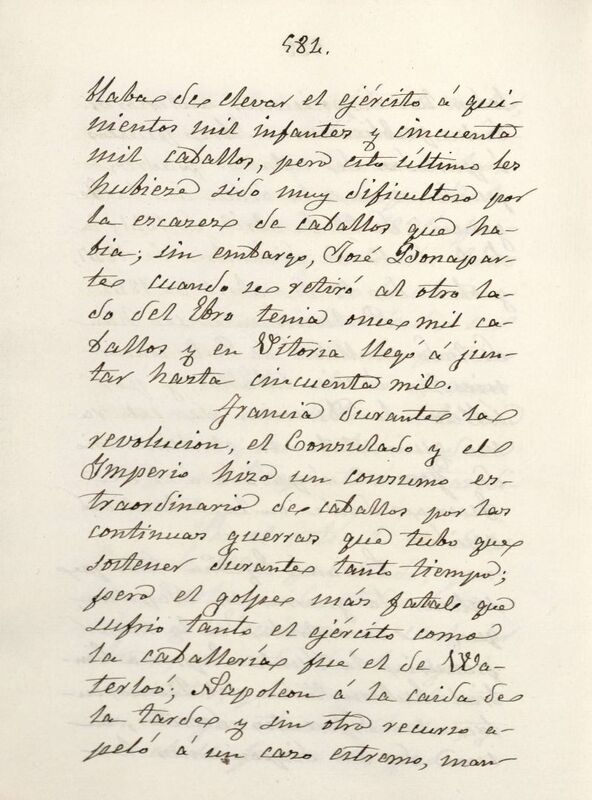 582.
blaba de elevar el ejército á qui-
nientos mil infantes y cincuenta
mil caballos, pero esto último les
hubiese sido muy dificultoso por
la escases de caballos que ha-
bia; sin embargo, José Bonapar-
te cuando se retiró al otro la-
do del Ebro tenia once mil ca-
ballos y en Vitoria llegó á jun-
tar hasta cincuenta mil.
Francia durante la
revolucion, el Consulado y el
Imperio hizo un consumo es-
traordinario de caballos por las
continuas guerras que tubo que
sostener durante tanto tiempo;
pero el golpe más fatal que
sufrio tanto el ejército como
la caballería fué el de Wa-
terloó; Napoleon á la caida de
la tarde y sin otro recurso a-
peló á un caso estremo, man-